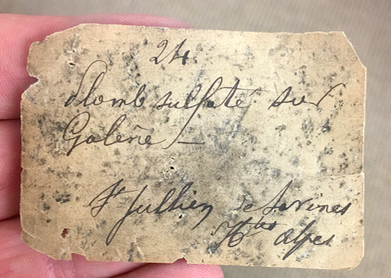 24.
Plomb sulfaté sur
Galène –
St Jullien de Savines
Htes alpes